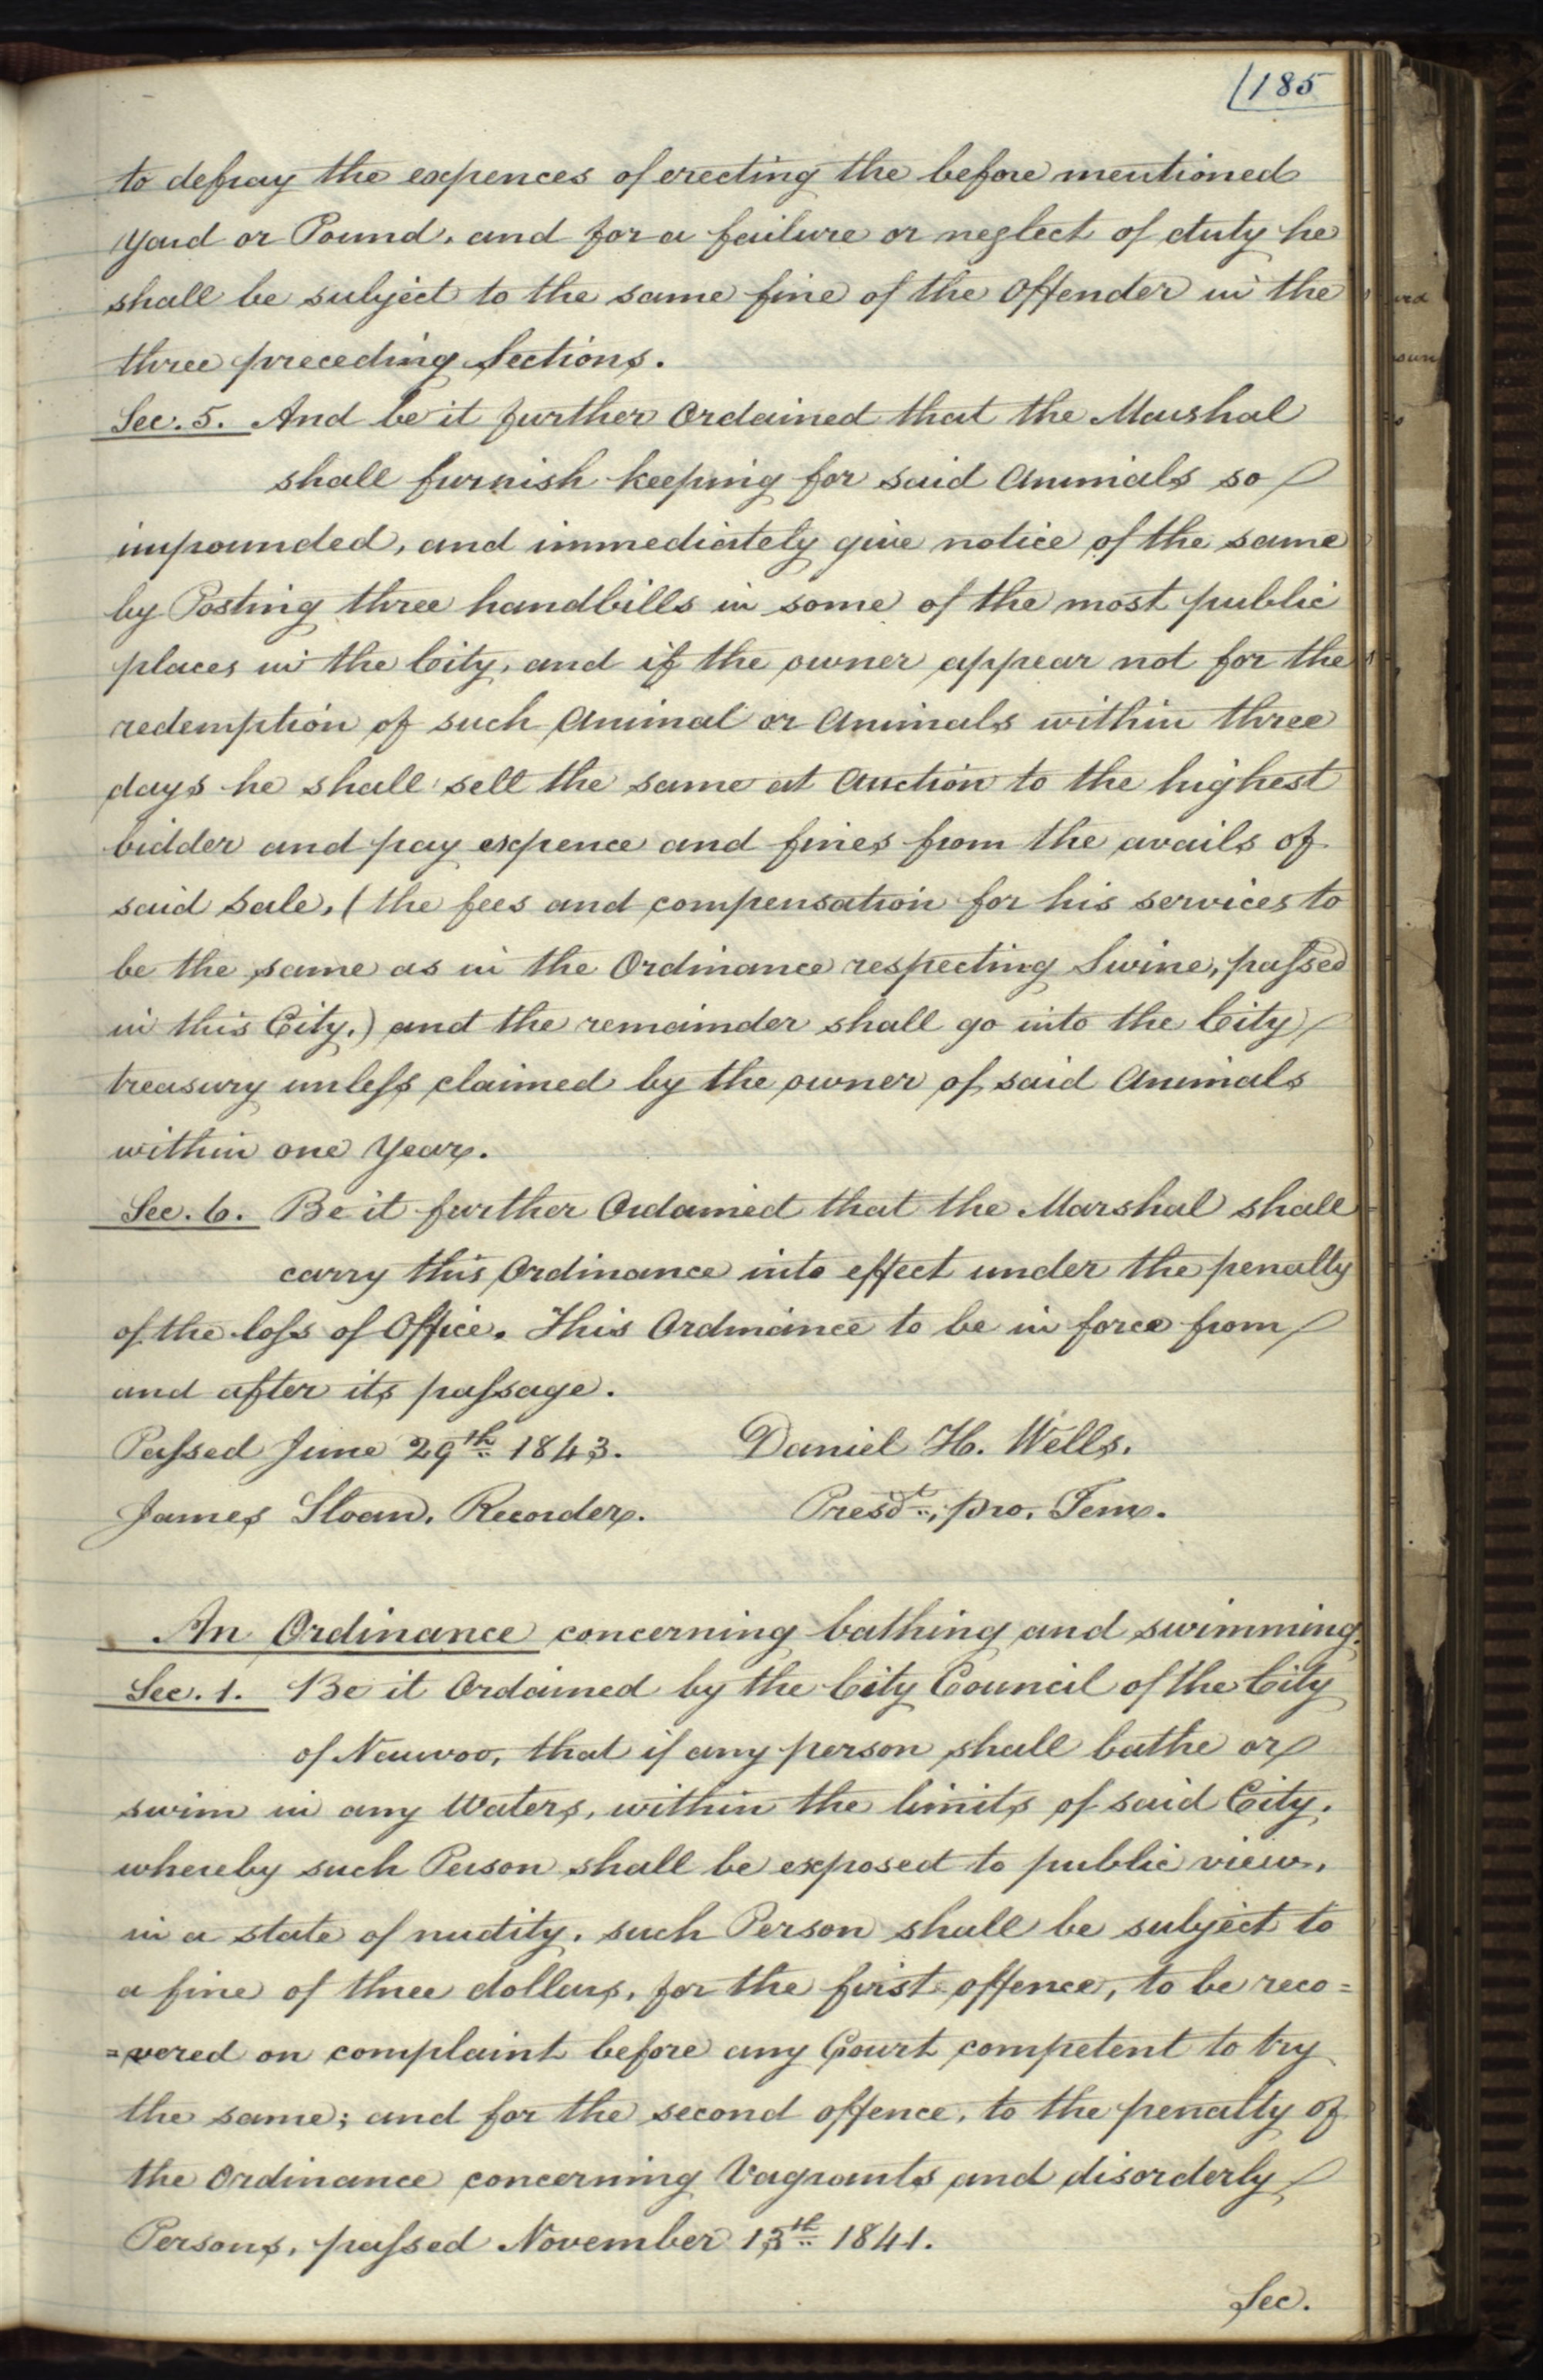 185
to defray the expences of erecting the before mentioned
Yard or Pound, and for a failure or neglect of duty he
shall be subject to the same fine of the Offender in the
three preceding Sections.
Sec. 5. And be it further Ordained that the Marshal
shall furnish keeping for said Animals so
impounded, and immediately give notice of the same
by Posting three handbills in some of the most public
places in the City, and if the owner appear not for the
redemption of such Animal or Animals within three
days he shall sell the same at Auction to the highest
bidder and pay expence and fines from the avails of
said Sale, (the fees and compensation for his services to
be the same as in the Ordinance respecting Swine, passed
in this City,) and the remainder shall go into the City
treasury unless claimed by the owner of said Animals
within one Year.
Sec. 6. Be it further Ordained that the Marshal shall
carry this Ordinance into effect under the penalty
of the loss of Office. This Ordinance to be in force from
and after its passage.
Passed June 29th 1843. Daniel H. Wells.
James Sloan, Recorder. Presdt, pro. Tem.
An Ordinance concerning bathing and swimming.
Sec. 1. Be it Ordained by the City Council of the City
of Nauvoo, that if any person shall bathe or
swim in any Waters, within the limits of said City,
whereby such Person shall be exposed to public view,
in a state of nudity, such Person shall be subject to
a fine of three dollars, for the first offence, to be reco=
=vered on complaint before any Court competent to try
the same; and for the second offence, to the penalty of
the Ordinance concerning Vagrants and disorderly
Persons, passed November 13th 1841.
Sec.